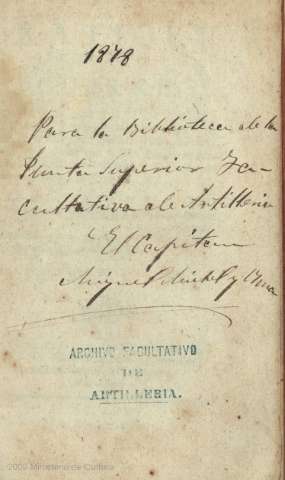 1878
Para la Biblioteca de la
Junta Superior Fa-
cultativa de Artilleria
El Capitan
Miguel Michel y
ARCHIVO FACULTATIVO
DE
ARTILLERIA.
2009 Ministerio de Cultura